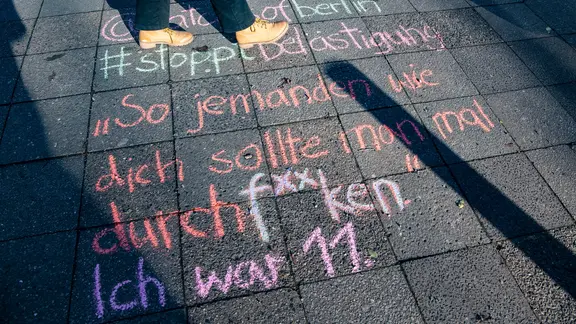 @catcallsofberlin
#stopptBelästigung
„So jemanden wie
dich sollte man mal
durchf**ken."
Ich war 11.